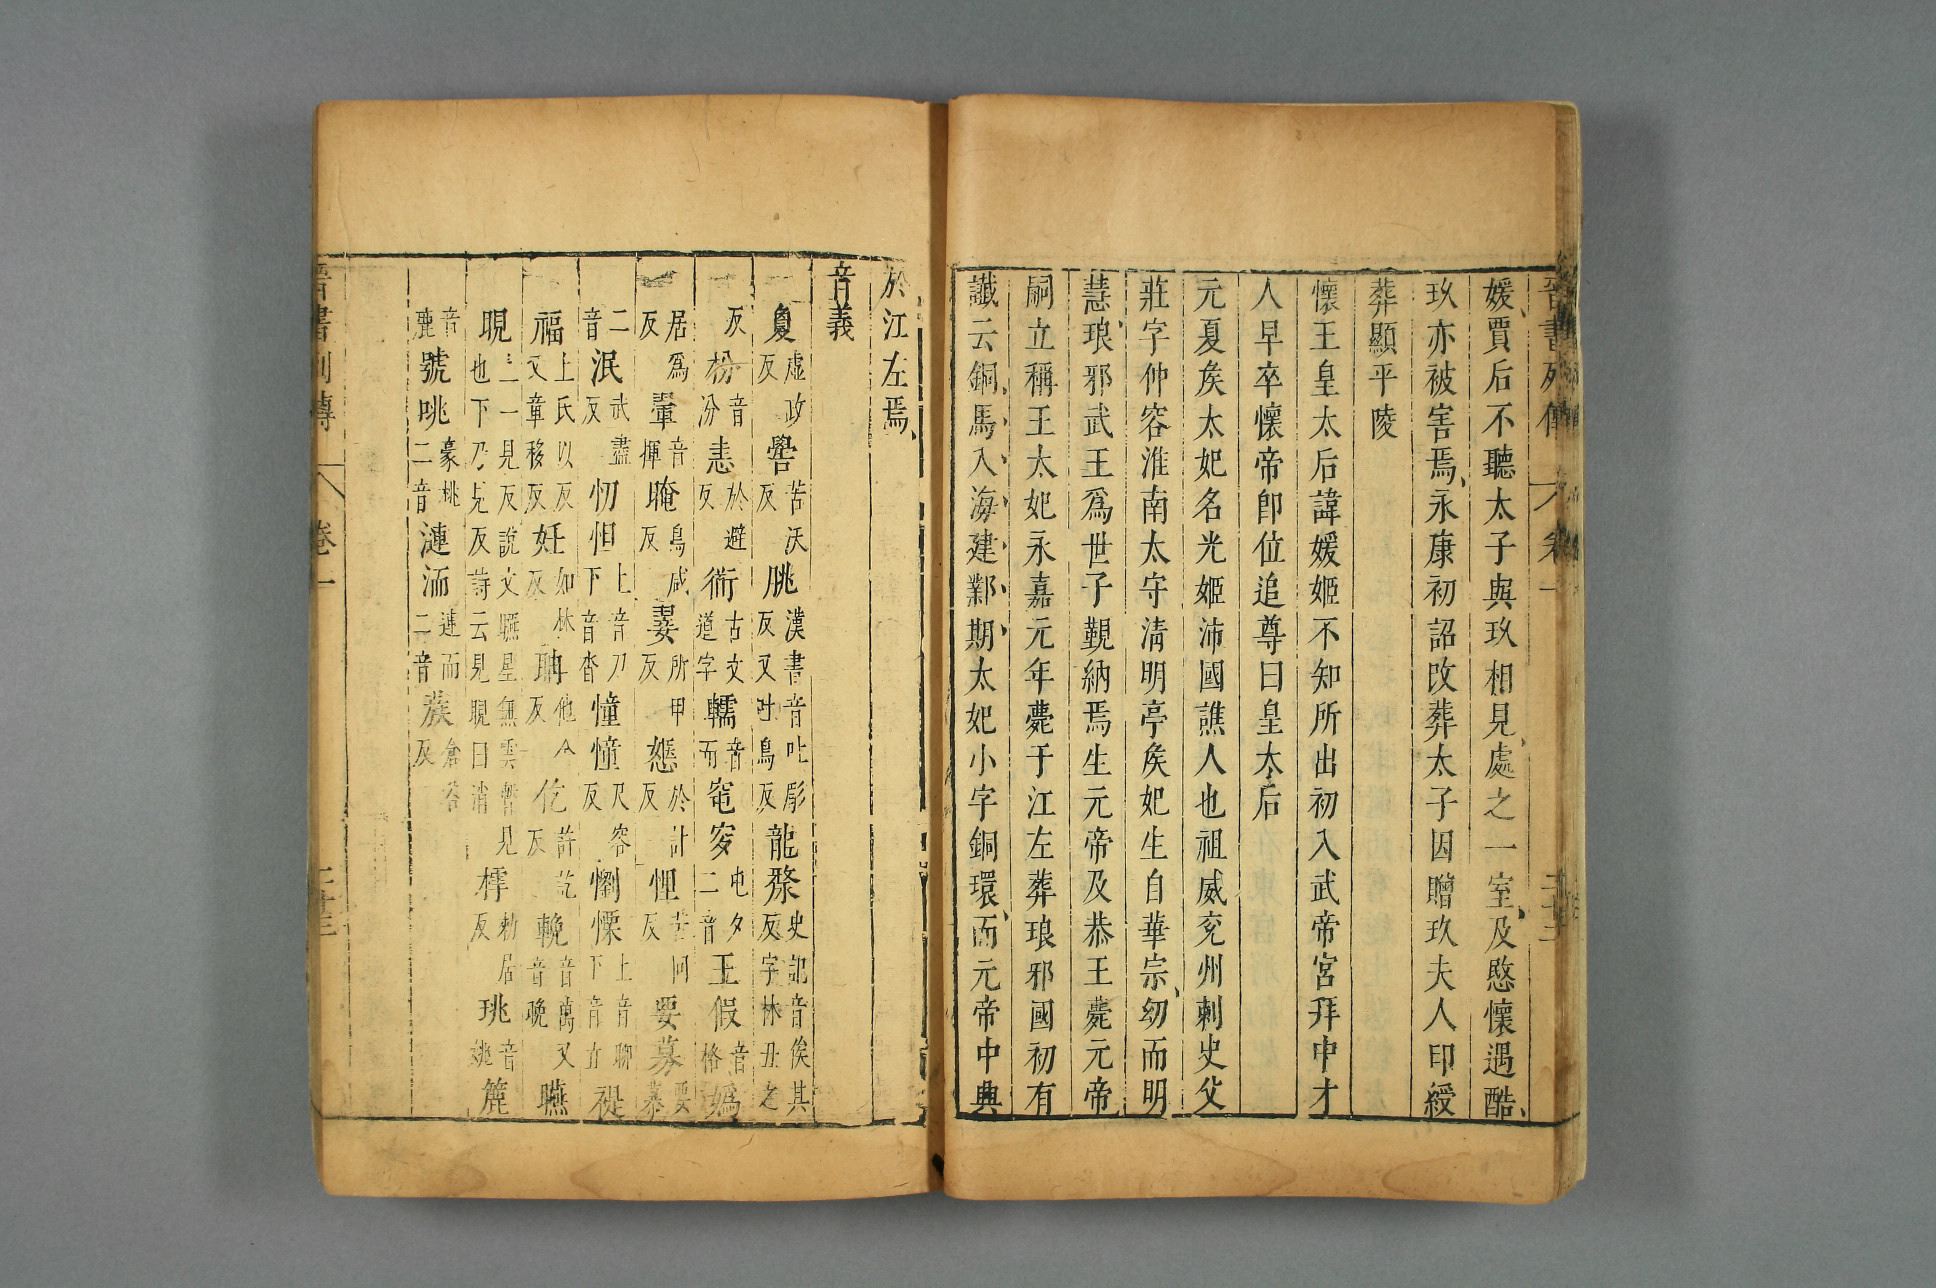 晉書列傳 卷一 二十三
媛賈后不聽太子與玖相見處之一室及愍懷遇酷
玖亦被害焉永康初詔改葬太子因贈玖夫人印綬
葬顯平陵
懷王皇太后諱媛姬不知所出初入武帝宮拜中才
人早卒懷帝卽位追尊曰皇太后
元夏矦太妃名光姬沛國譙人也祖威兖州刺史父
莊字仲容淮南太守清明亭矦妃生自華宗幼而明
慧琅邪武王爲世子覲納焉生元帝及恭王薨元帝
嗣立稱王太妃永嘉元年薨于江左葬琅邪國初有
讖云銅馬入海建鄴期太妃小字銅環而元帝中興
於江左焉
音義
夐虛政反 嚳苦沃反 朓漢書音吐彫反又吐鳥反 龍漦史記音俟其反字林丑之
反 枌音汾 恚於避反 衜古文道字 轜音而 窀穸屯夕二音 王假音格 嬀
居爲反 翬音揮 晻烏感反 翣所甲反 慝反 悝苦回反 要募要募
二音 泯武盡反 忉怛上音刀下音 憧憧尺容反 懰慄上音聊下音 禔
福上氏以反又章移反 妊如林反 聃他含反 仡許訖反 輓音萬又音晚 曣
晛上一見反說文曣星無雲暫見也下乃見反詩云見晛曰消 樗勑居反 珧音姚 簏
音鹿 號咷豪桃二音 漣洏連而二音 蔟倉谷反
晉書列傳 卷一 二十三